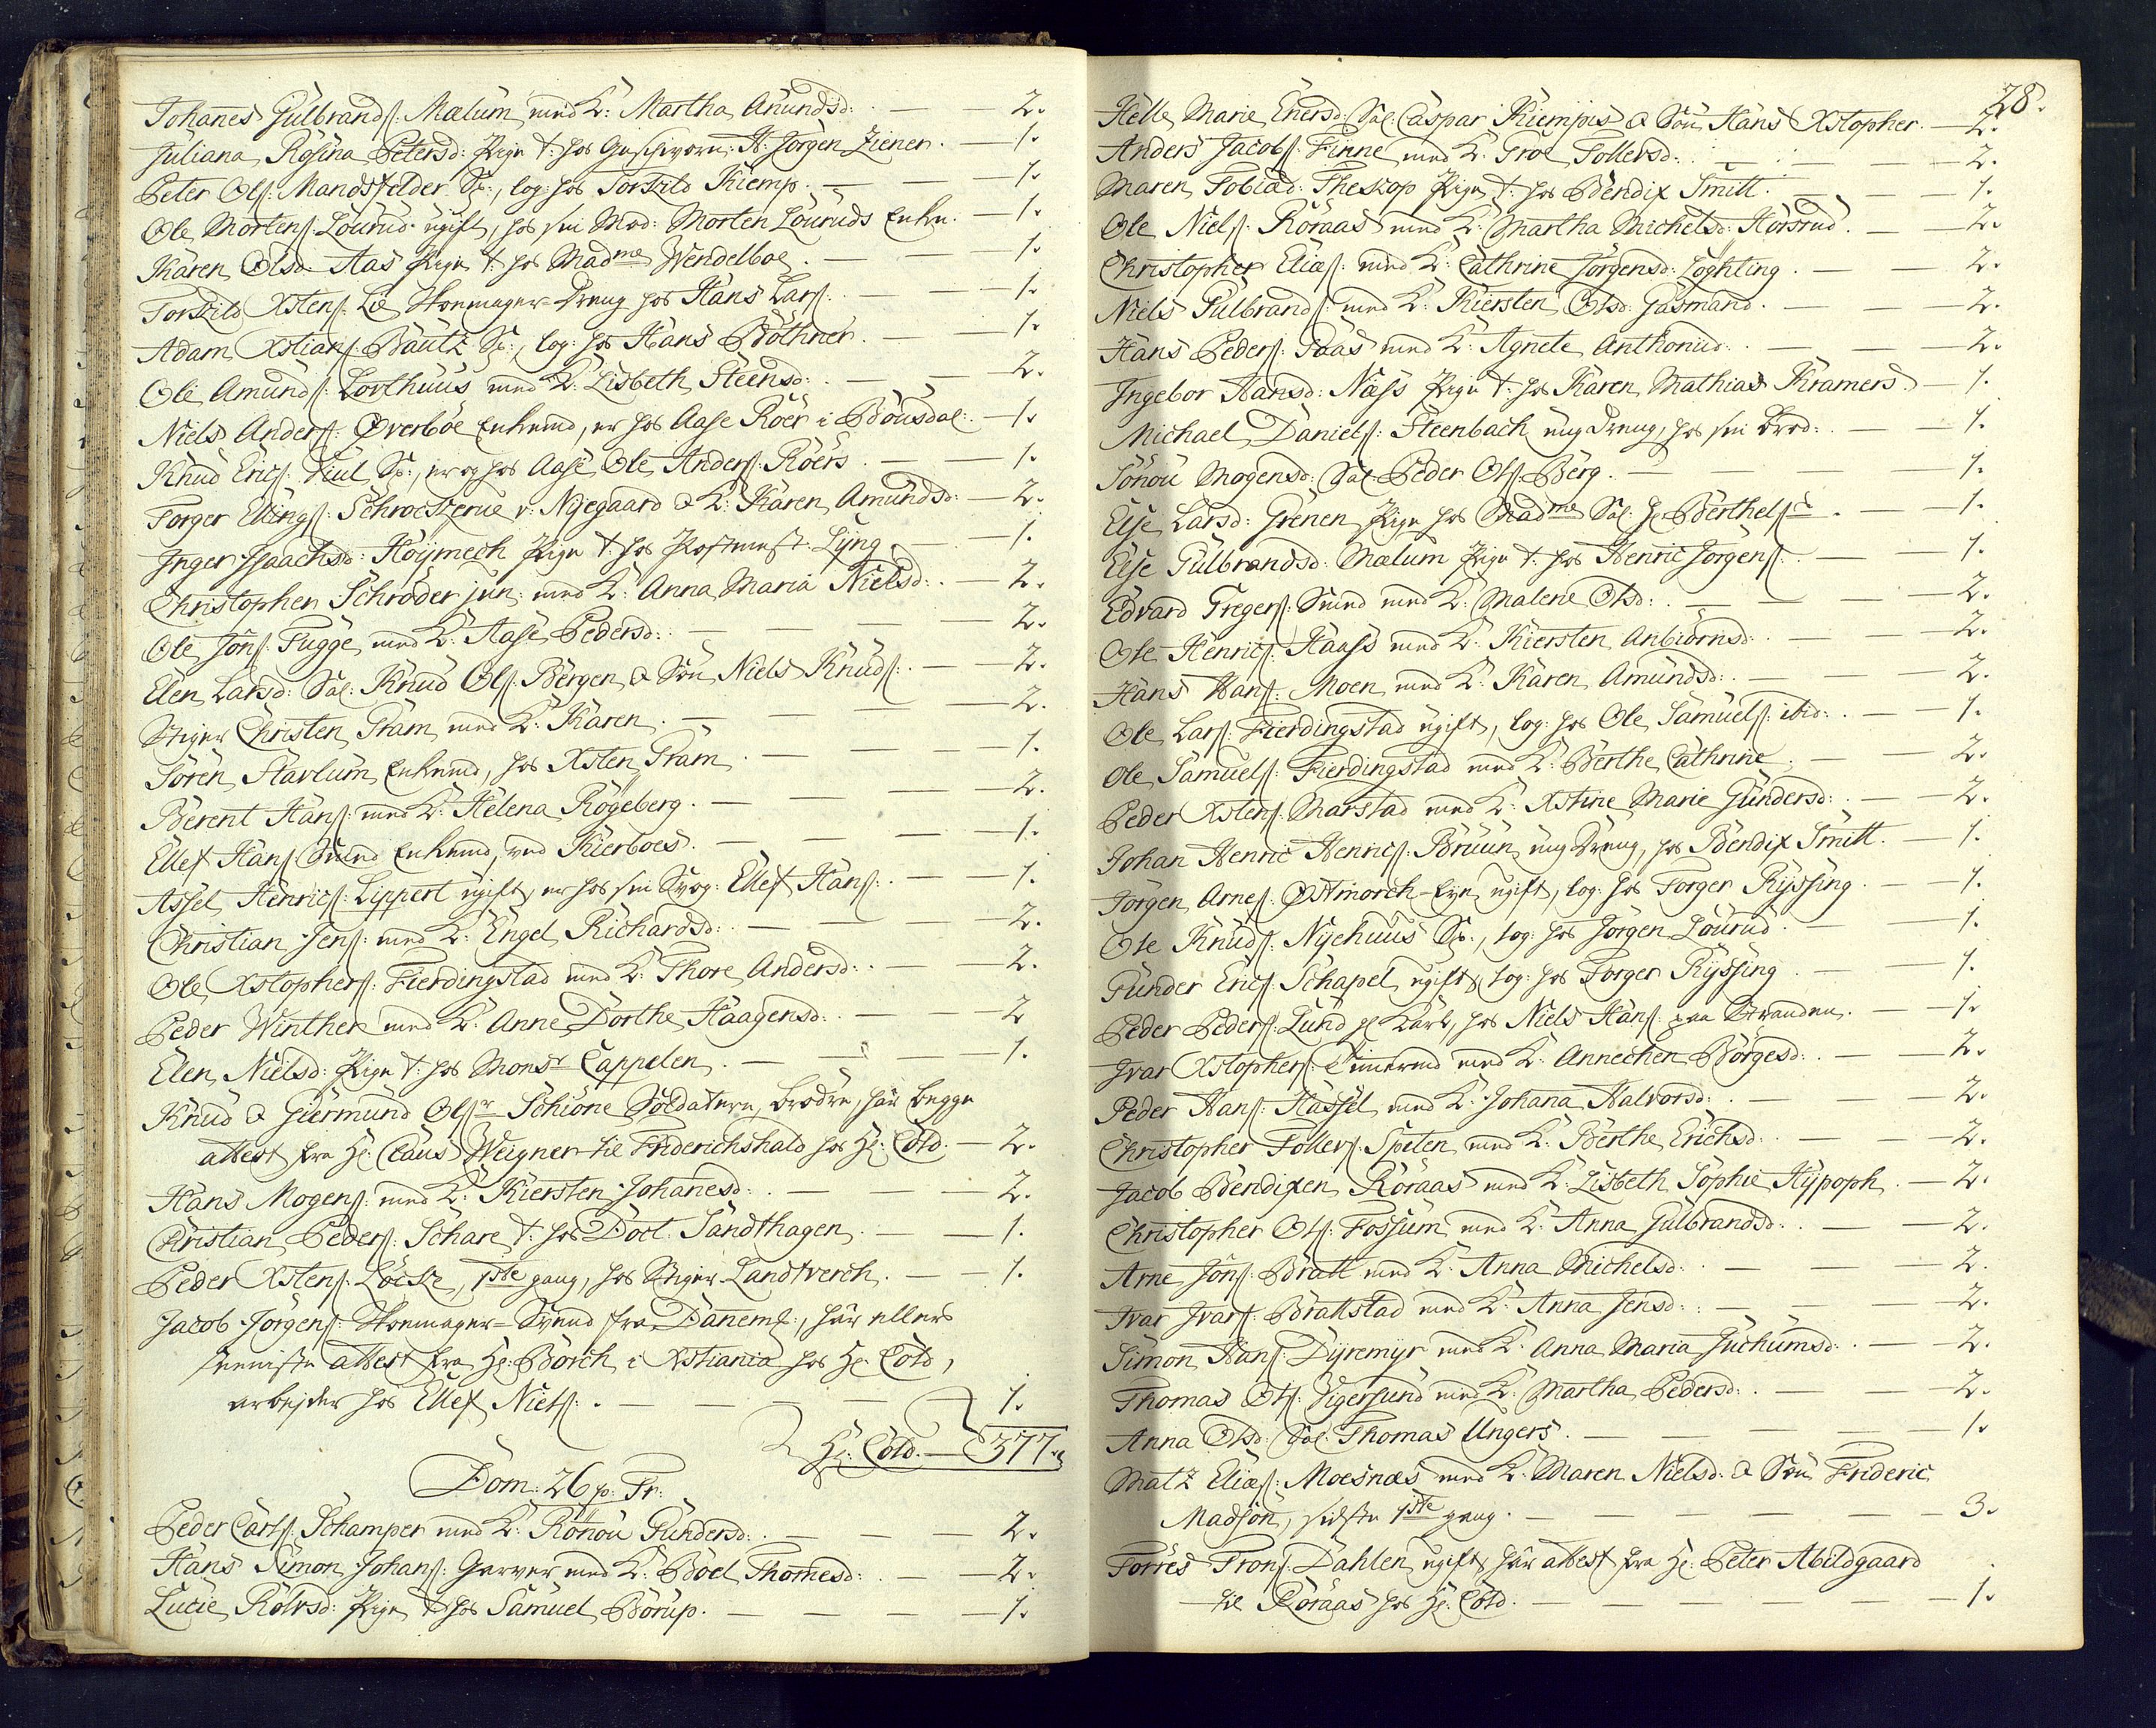 Johanes Gülbrandſ: Mælum med K: Martha Anundsd: — — 2.
Juliana Rosina Petersd: Pige t: hos Geschworn: H: Jörgen Ziener. — 1.
Peter Olſ: Mandsfelder Sp:, log: hos Torkild Kiemp. — — 1.
Ole Mortenſ: Löurud ugift, hos sin Mod: Morten Löuruds Enke. — 1.
Karen Olsd: Aas Pige t: hos Madme Wendelboe. — — 1.
Torkild Xstenſ: Lie Skoemager-Dreng hos Hans Larſ: — — 1.
Adam Xstianſ: Bautz Sp:, log: hos Hans Böthner. — 1.
Ole Amundſ: Lofthuus med K: Lisbeth Steensd: — — 2.
Niels Anderſ: Overböe Enkemd, er hos Aase Röer i Bousdal. — 1.
Knud Ericſ: Kiul Sp:, er og hos Aase Ole Anderſ: Röers — — 1.
Torger Ellingſ: Schrockerue v: Nyegaard & K: Karen Amundsd: — 2.
Inger Isaachsd: Höymech Pige t: hos Postmest: Lyng — — 1.
Christopher Schröder jun: med K: Anna Maria Nielsd: — 2.
Ole Jonſ: Fugge med K: Aase Pedersd: — — — 2.
Elen Larsd: Sal: Knud Olſ: Bergen & Sön Niels Knudſ: — 2.
Stiger Christen Gram med K: Karen. — — — 2.
Sören Stavlum Enkemd, hos Xsten Gram. — — — 1.
Berent Hanſ: med K: Helena Rögeberg. — — — 2.
Ellef Hanſ Svend Enkemd, ved Kierboes. — — — 1.
Assel Henricſ: Lippert ugift, er hos sin Svog: Ellef Hanſ: — 1.
Christian Jenſ: med K: Engel Richardsd: — — — 2.
Ole Xstopherſ: Fierdingstad med K: Thore Andersd: — 2.
Peder Winther med K: Anne Dorthe Haagensd: — — 2
Elen Nielsd: Pige t: hos Monsr Cappelen. — — — 1.
Knud & Giermund Olſr Schiöne Soldatere, brödre, har begge
attest fra Hr: Claus Weigner til Friderichshald hos Hr: Cold. — 2.
Hans Mogenſ: med K: Kiersten Johanesd: — — — 2.
Christian Pederſ: Schare t: hos Doct: Sandthagen. — — 1.
Peder Xstenſ: Löcke, 1ste gang, hos Stiger Landtverch. — 1.
Jacob Jörgenſ: Skoemager-Svend fra Danemk:, har ellers
seeniste attest fra Hr: Borch i Xstiania hos Hr: Cold,
arbejder hos Ellef Nielſ: — — — — 1.
Hr: Cold. — 377.
Dom: 26 p: Tr:
Peder Carlſ: Schamper med K: Rönou Gundersd: — — 2.
Hans Simon Johanſ: Garver med K: Böel Thomesd: — — 2.
Lucie Rolvsd: Pige t: hos Samuel Börup. — — — 1.
28.
Helle Marie Enersd: Sal: Caspar Kiempes & Sön Hans Xstopher. — 2.
Anders Jacobſ: Finne med K: Groe Tollevsd: — — — 2.
Maren Tobiæd: Theskop Pige t: hos Bendix Smitt. — — 1.
Ole Nielſ: Röraas med K: Martha Michelsd: Horsrud. — 2.
Christopher Eliæſ: med K: Cathrine Jörgensd: Löghting. — 2.
Niels Gulbrandſ: med K: Kiersten Olsd: Gasmand. — — 2.
Hans Pederſ: Saas med K: Agnete Anthonid: — — 2.
Ingebor Hansd: Næss Pige t: hos Karen Mathias Kramers. — 1.
Michael Danielſ: Steenbach ung Dreng, hos sin Brod: — 1.
Sönou Mogensd: Sal: Peder Olſ: Berg. — — — 1.
Else Larsd: Grenen Pige hos Madme Sal: Hr: Berthelſ: — 1.
Else Gulbrandsd: Mælum Pige t: hos Henric Jörgenſ: — 1.
Edvard Gregerſ: Smed med K: Malene Olsd: — — 2.
Ole Henricſ: Haass med K: Kiersten Anbiörnsd: — — 2.
Hans Hanſ: Moen med K: Karen Amundsd: — — — 2.
Ole Larſ: Fierdingstad ugift, log: hos Ole Samuelſ: ibid: — 1.
Ole Samuelſ: Fierdingstad med K: Berthe Cathrine — 2.
Peder Xstenſ: Marstad med K: Xstine Marie Gundersd: — 2.
Johan Henric Henricſ: Bruun, ung Dreng, hos Bendix Smitt. — 1.
Jörgen Arneſ: Ostmorch-Eie ugift, log: hos Torger Ryssing. — 1.
Ole Knudſ: Nyehuus Sp:, log: hos Jörgen Löurud. — — 1.
Gunder Ericſ: Schapel ugift, log: hos Torger Ryssing. — 1.
Peder Pederſ: Lund gl: Karl, hos Niels Hanſ: paa Stranden. — 1.
Ivar Xstopherſ: Timermd med K: Annechen Börgesd: — 2.
Peder Hanſ: Hassel med K: Johana Halvorsd: — — 2.
Christopher Tollevſ: Speten med K: Berthe Erichsd: — — 2.
Jacob Bendixen Röraas med K: Lisbeth Sophie Hypoph — 2.
Christopher Olſ: Fossum med K: Anna Gulbrandsd: — — 2.
Arne Jonſ: Bratt med K: Anna Michelsd: — — — 2.
Ivar Ivarſ: Brattstad med K: Anna Jensd: — — — 2.
Simon Hanſ: Dyremyr med K: Anna Maria Juchumsd: — 2.
Thomas Olſ: Vigersund med K: Martha Pedersd: — — 2.
Anna Olsd: Sal: Thomas Ungers. — — — — 1.
Matz Eliæſ: Moesnæs med K: Maren Nielsd: & Sön Frideric
Madsön, sidste 1ste gang. — — — — — 3.
Torres Tronſ: Dahlen ugift, har attest fra Hr: Peter Abildgaard
til Röraas hos Hr: Cold. — — — — — 1.